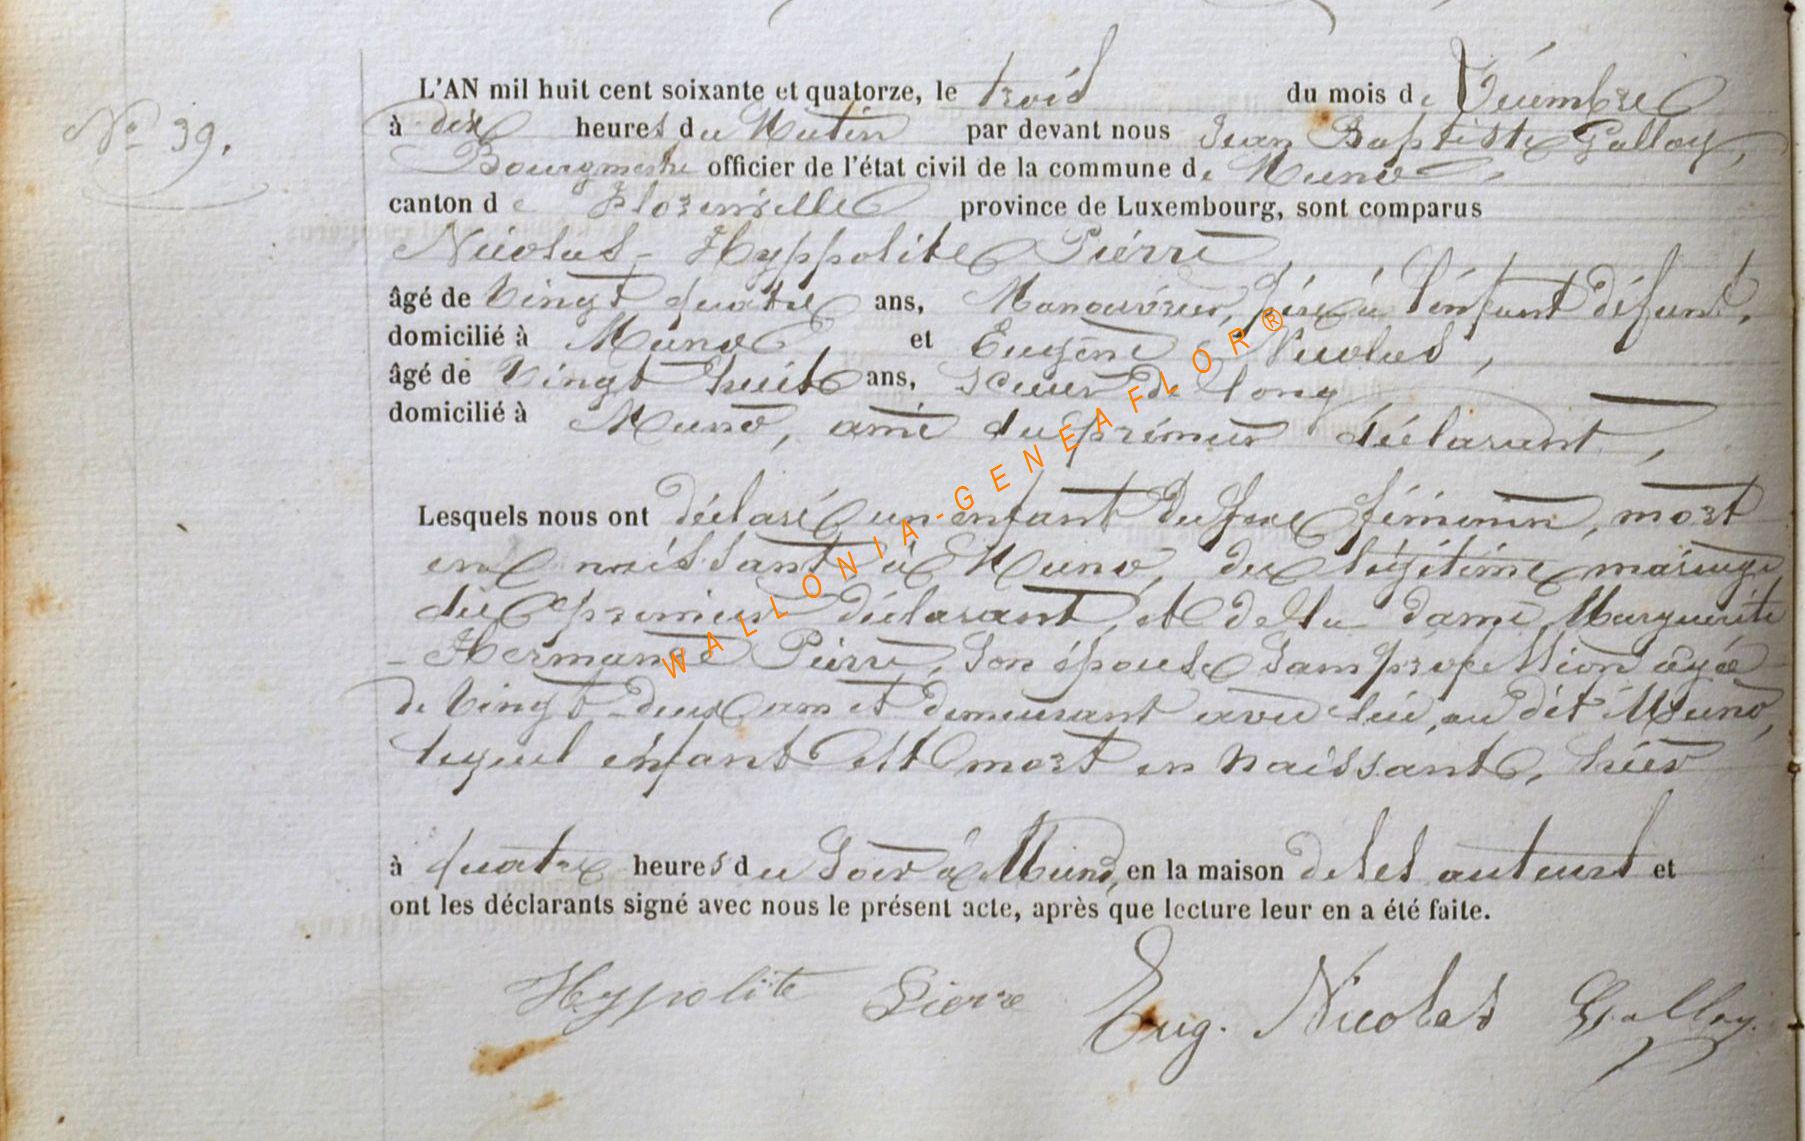 N° 39.
L'AN mil huit cent soixante et quatorze, le trois du mois de Décembre
à dix heures du Matin par devant nous Jean Baptiste Galloy,
Bourgmestre officier de l'état civil de la commune de Muno,
canton de Florenville province de Luxembourg, sont comparus
Nicolas-Hyppolite Pierre,
âgé de Vingt quatre ans, Manouvrier, père à l'enfant défunt,
domicilié à Muno, et Eugène Nicolas,
âgé de Vingt huit ans, Scieur de long
domicilié à Muno, ami du prémier déclarant,
Lesquels nous ont déclaré un enfant du sexe féminin, mort
en naissant à Muno, du légitime mariage
du premier déclarant, et de la dame Marguerite
-Hermance Pierre, son épouse sans profession âgée
de Vingt-deux ans et demeurant avec lui, au dit Muno,
lequel enfant est mort en naissant, hier
à quatre heures du Soir à Muno, en la maison de ses auteurs et
ont les déclarants signé avec nous le présent acte, après que lecture leur en a été faite.
Hypolite Pierre Eug. Nicolas Galloy
WALLONIA-GENEAFLOR®